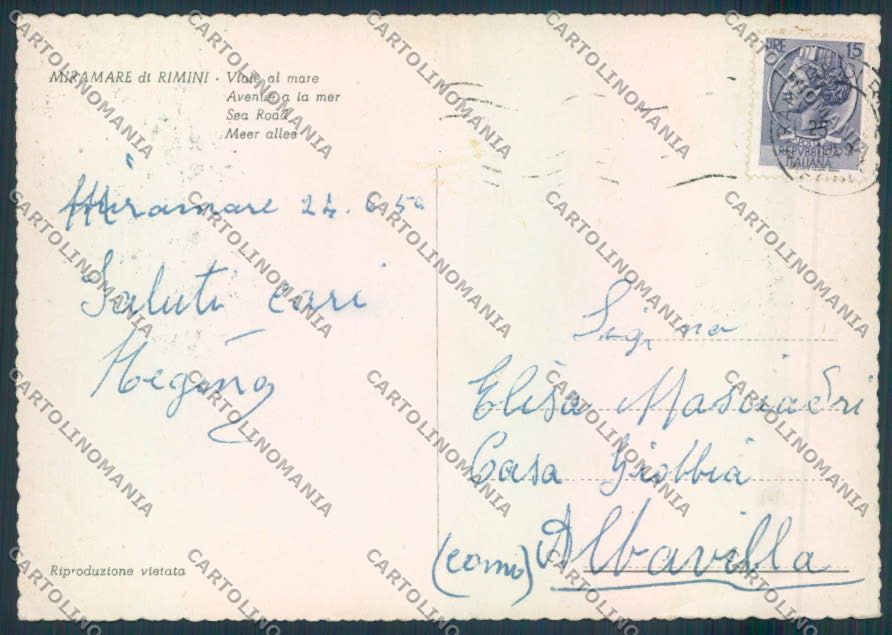 MIRAMARE di RIMINI - Viale al mare
Avenue a la mer
Sea Road
Meer allee
LIRE 15
POSTE
REPVBBLICA
ITALIANA
Miramare 24. 6. 5
Saluti cari
Regina
Sig.na
Elisa Masciadri
Casa Giobbia
(Como) Albavilla
Riproduzione vietata
CARTOLINOMANIA